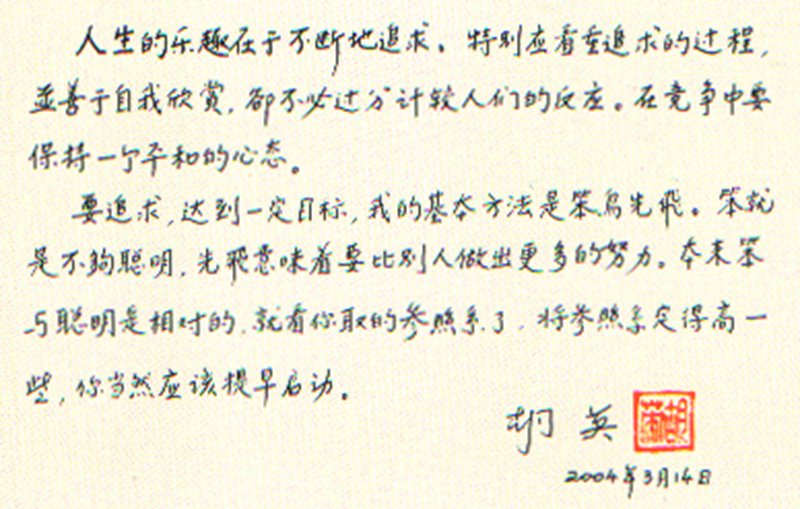 人生的乐趣在于不断地追求。特别应看重追求的过程，
並善于自我欣赏，卻不必过分计较人们的反应。在竞争中要
保持一个平和的心态。
要追求，达到一定目标，我的基本方法是笨鸟先飛。笨就
是不夠聪明，先飛意味着要比别人做出更多的努力。本来笨
与聪明是相对的，就看你取的参照系了，将参照系定得高一
些，你当然应该提早启动。
胡英
2004年3月14日